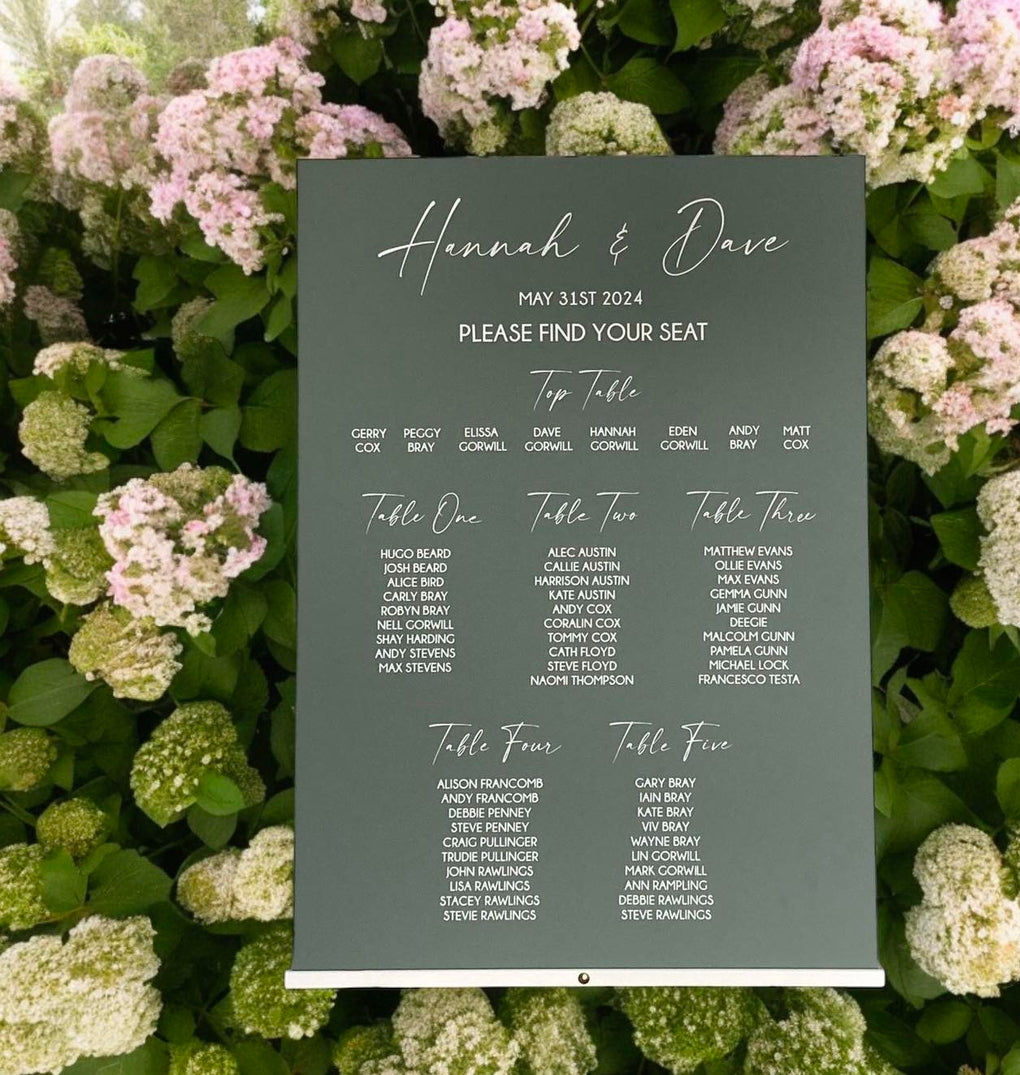 Hannah & Dave
MAY 31ST 2024
PLEASE FIND YOUR SEAT
Top Table
GERRY COX
PEGGY BRAY
ELISSA GORWILL
DAVE GORWILL
HANNAH GORWILL
EDEN GORWILL
ANDY BRAY
MATT COX
Table One
HUGO BEARD
JOSH BEARD
ALICE BIRD
CARLY BRAY
ROBYN BRAY
NELL GORWILL
SHAY HARDING
ANDY STEVENS
MAX STEVENS
Table Two
ALEC AUSTIN
CALLIE AUSTIN
HARRISON AUSTIN
KATE AUSTIN
ANDY COX
CORALIN COX
TOMMY COX
CATH FLOYD
STEVE FLOYD
NAOMI THOMPSON
Table Three
MATTHEW EVANS
OLLIE EVANS
MAX EVANS
GEMMA GUNN
JAMIE GUNN
DEEGIE
MALCOLM GUNN
PAMELA GUNN
MICHAEL LOCK
FRANCESCO TESTA
Table Four
ALISON FRANCOMB
ANDY FRANCOMB
DEBBIE PENNEY
STEVE PENNEY
CRAIG PULLINGER
TRUDIE PULLINGER
JOHN RAWLINGS
LISA RAWLINGS
STACEY RAWLINGS
STEVIE RAWLINGS
Table Five
GARY BRAY
IAIN BRAY
KATE BRAY
VIV BRAY
WAYNE BRAY
LIN GORWILL
MARK GORWILL
ANN RAMPLING
DEBBIE RAWLINGS
STEVE RAWLINGS